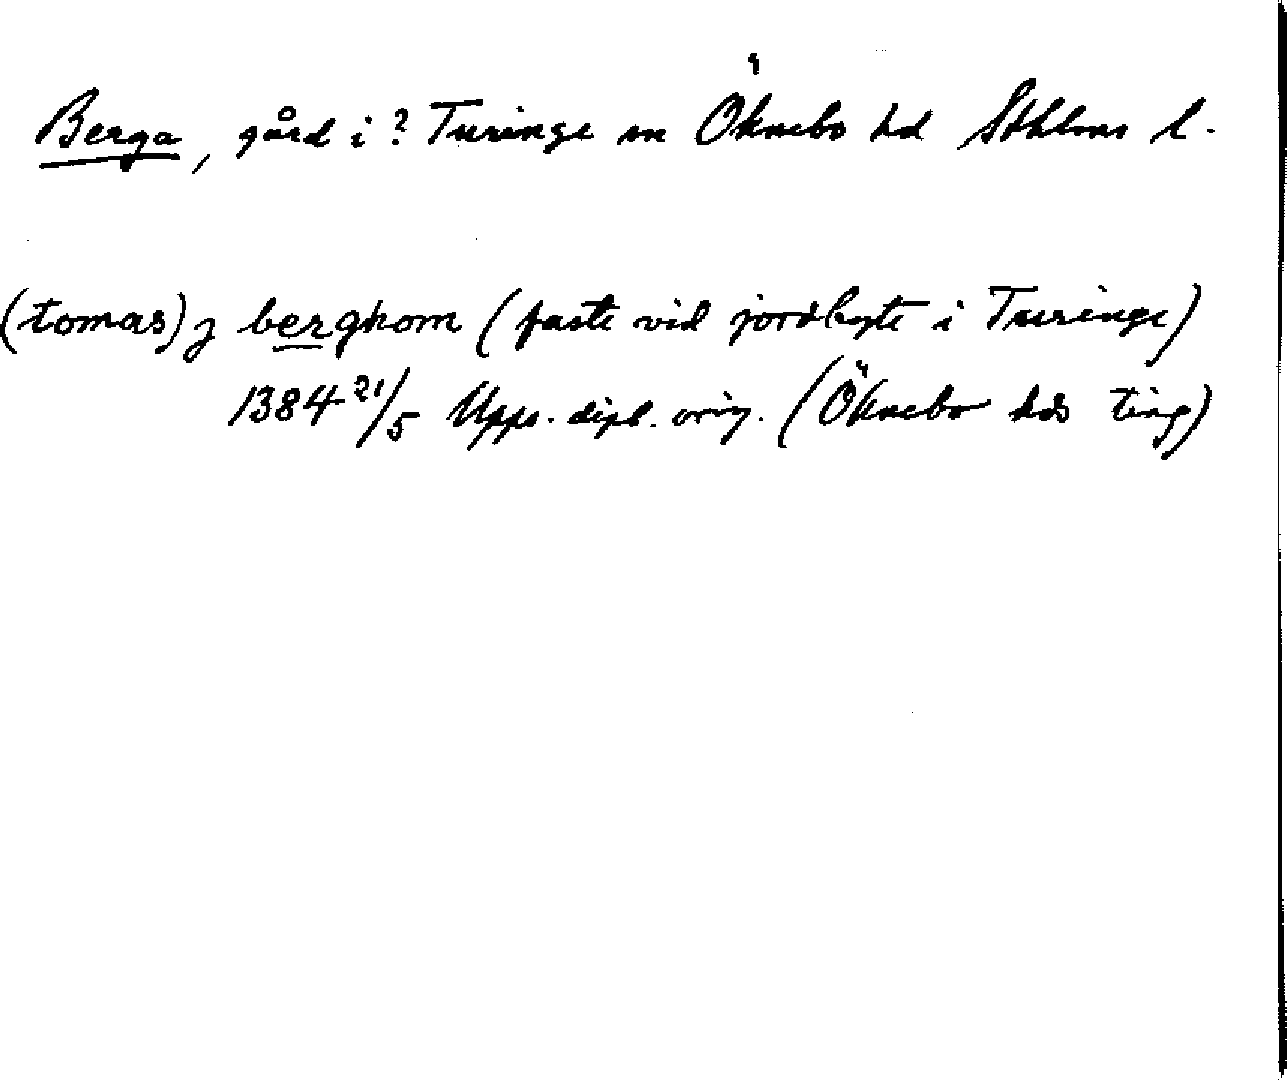 Berga, gård i ? Turinge sn Öknebo hd Sthlms l.
(tomas) j berghom (faste vid jordbyte i Turinge)
1384 21/5 Upps. dipl. orig. (Öknebo hds ting)